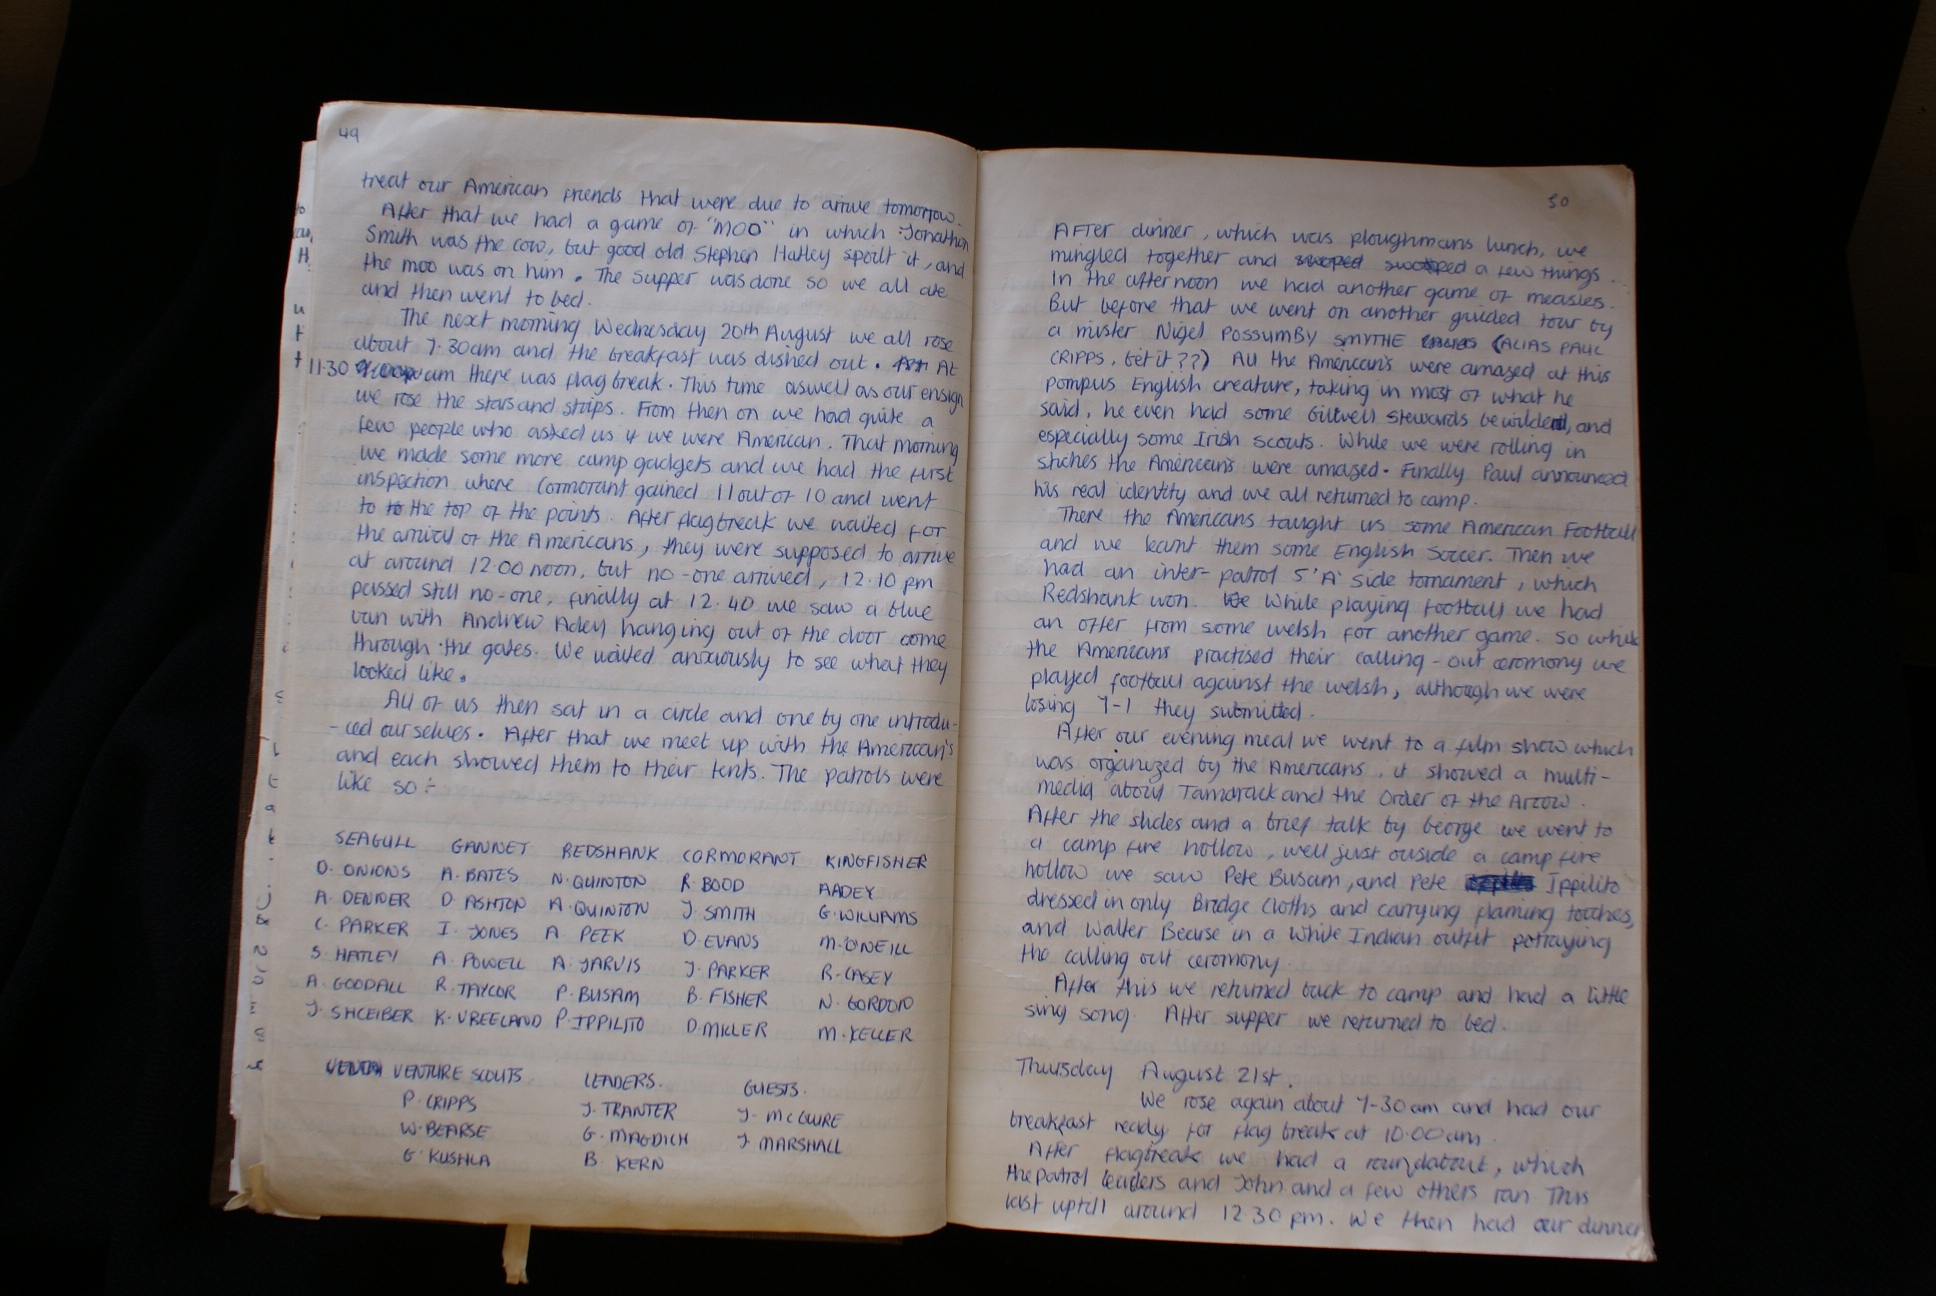 49
treat our American friends that were due to arrive tomorrow.
After that we had a game of "MOO" in which Jonathon
Smith was the cow, but good old Stephen Hatley spoilt it, and
the moo was on him. The supper was done so we all ate
and then went to bed.
The next morning Wednesday 20th August we all rose
about 7.30am and the breakfast was dished out. At
11.30 am there was flag break. This time aswell as our ensign
we rose the stars and strips. From then on we had quite a
few people who asked us if we were American. That morning
we made some more camp gadgets and we had the first
inspection where Cormorant gained 11 out of 10 and went
to the top of the points. After flagbreak we waited for
the arrival of the Americans, they were supposed to arrive
at around 12.00 noon, but no-one arrived, 12.10 pm
passed still no-one, finally at 12.40 we saw a blue
van with Andrew Adey hanging out of the door come
through the gates. We waited anxiously to see what they
looked like.
All of us then sat in a circle and one by one introdu-
-ced ourselves. After that we meet up with the American's
and each showed them to their tents. The patrols were
like so :-
SEAGULL GANNET REDSHANK CORMORANT KINGFISHER
D. ONIONS A. BATES N. QUINTON R. BOOD A ADEY
A. DENNER D ASHTON A. QUINTON J. SMITH G. WILLIAMS
C. PARKER I. JONES A PEEK D. EVANS M. O'NEILL
S. HATLEY A. POWELL A. JARVIS J. PARKER R. CASEY
A. GOODALL R. TAYLOR P. BUSAM B. FISHER N. GORDON
J. SHCEIBER K. VREELAND P. IPPILITO D. MILLER M. KELLER
VENTURE SCOUTS. LEADERS. GUESTS.
P. CRIPPS J. TRANTER J. McGUIRE
W. BEARSE G. MAGDICH J. MARSHALL
G. KUSHLA B. KERN
50
After dinner, which was ploughmans lunch, we
mingled together and swopped a few things.
In the afternoon we had another game of measles.
But before that we went on another guided tour by
a mister Nigel POSSUMBY SMYTHE (ALIAS PAUL
CRIPPS, Get it??) All the American's were amazed at this
pompus English creature, taking in most of what he
said, he even had some Gillwell stewards bewilderd, and
especially some Irish scouts. While we were rolling in
stiches the American's were amazed. Finally Paul announced
his real identity and we all returned to camp.
There the Americans taught us some American Football
and we learnt them some English Soccer. Then we
had an inter-patrol 5 'A' side tornament, which
Redshank won. While playing football we had
an offer from some welsh for another game. So while
the Americans practised their calling-out ceremony we
played football against the welsh, although we were
losing 7-1 they submitted.
After our evening meal we went to a film show which
was organized by the Americans, it showed a multi-
media about Tamarack and the Order of the Arrow.
After the slides and a brief talk by George we went to
a camp fire hollow, well just outside a camp fire
hollow we saw Pete Busam, and Pete Ippilito
dressed in only Bridge Cloths and carrying flaming torches,
and Walter Bearse in a White Indian outfit potraying
the calling out ceremony.
After this we returned back to camp and had a little
sing song. After supper we returned to bed.
Thursday August 21st.
We rose again about 7-30 am and had our
breakfast ready for flag break at 10.00am.
After flagbreak we had a roundabout, which
the patrol leaders and John and a few others ran This
last uptill around 12.30 pm. We then had our dinner